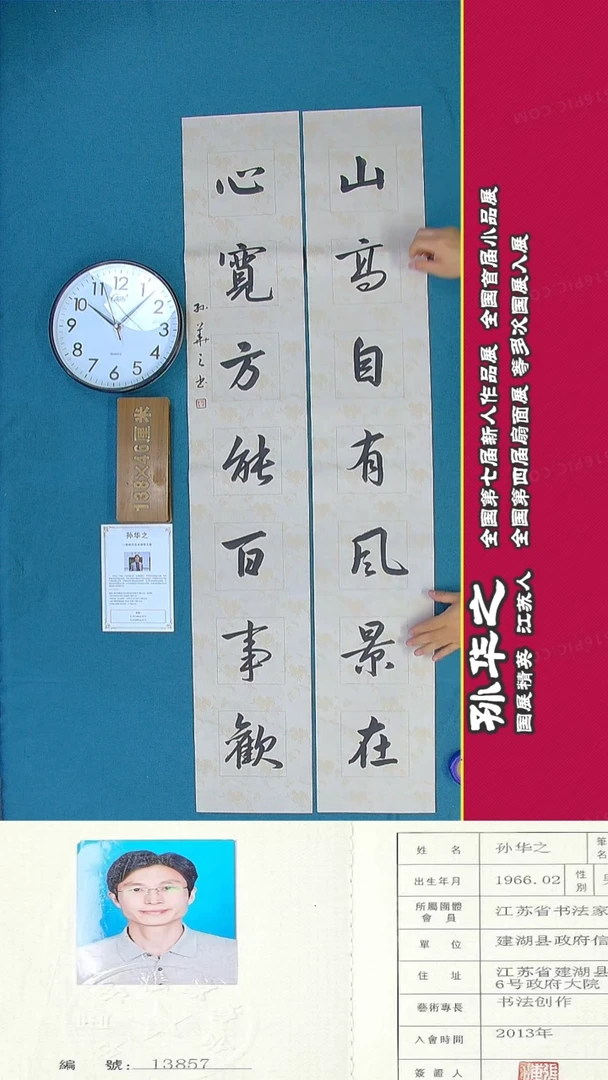 山高自有風景在
心寬方能百事歡
孙華之书
12
1
2
3
4
5
6
7
8
9
10
11
138×46厘米
孙华之
孙华之
国展精英 江苏人
全国第七届新人作品展 全国首届小品展
全国第四届扇面展 等多次国展入展
編 號: 13857
姓 名 孙华之 筆名
出生年月 1966.02 性別
所屬團體會員 江苏省书法家
單 位 建湖县政府信
住 址 江苏省建湖县
6号政府大院
藝術專長 书法创作
入會時間 2013年
簽證人